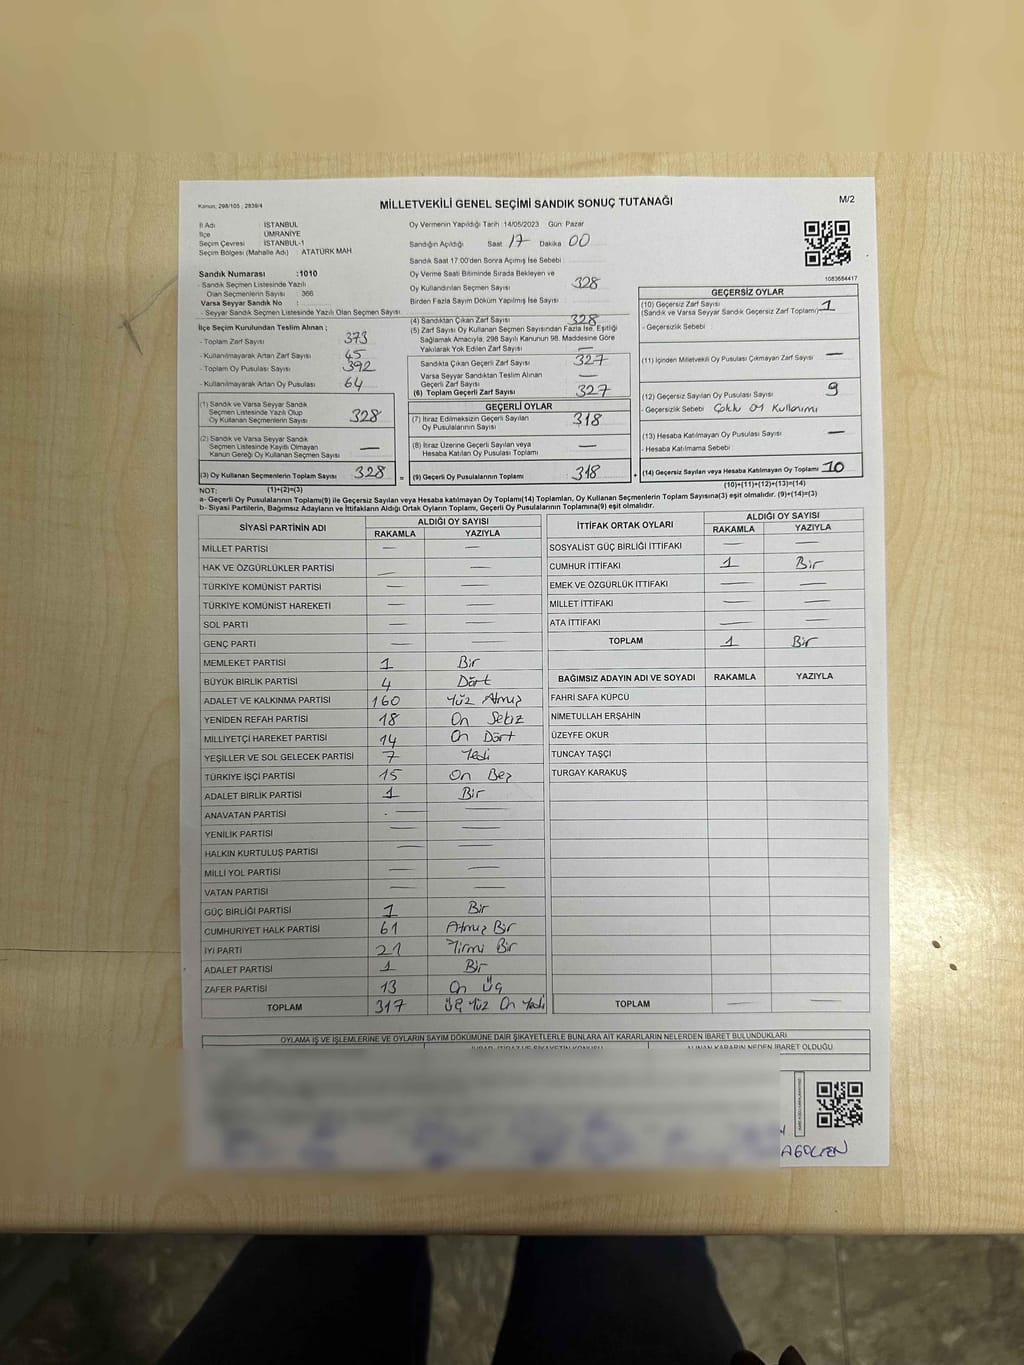 Kanun: 298/105 ; 2839/4
MİLLETVEKİLİ GENEL SEÇİMİ SANDIK SONUÇ TUTANAĞI
M/2
İl Adı İSTANBUL
İlçe ÜMRANİYE
Seçim Çevresi İSTANBUL-1
Seçim Bölgesi (Mahalle Adı) : ATATÜRK MAH
Sandık Numarası :1010
- Sandık Seçmen Listesinde Yazılı
Olan Seçmenlerin Sayısı : 366
Varsa Seyyar Sandık No :
- Seyyar Sandık Seçmen Listesinde Yazılı Olan Seçmen Sayısı
İlçe Seçim Kurulundan Teslim Alınan ;
- Toplam Zarf Sayısı 373
- Kullanılmayarak Artan Zarf Sayısı 45
- Toplam Oy Pusulası Sayısı 392
- Kullanılmayarak Artan Oy Pusulası 64
(1) Sandık ve Varsa Seyyar Sandık
Seçmen Listesinde Yazılı Olup
Oy Kullanan Seçmenlerin Sayısı 328
(2) Sandık ve Varsa Seyyar Sandık
Seçmen Listesinde Kayıtlı Olmayan
Kanun Gereği Oy Kullanan Seçmen Sayısı —
(3) Oy Kullanan Seçmenlerin Toplam Sayısı 328
(1)+(2)=(3)
Oy Vermenin Yapıldığı Tarih 14/05/2023 Gün: Pazar
Sandığın Açıldığı Saat 17 Dakika 00
Sandık Saat 17:00'den Sonra Açımış İse Sebebi
Oy Verme Saati Bitiminde Sırada Bekleyen ve
Oy Kullandırılan Seçmen Sayısı 328
Birden Fazla Sayım Döküm Yapılmış İse Sayısı
(4) Sandıktan Çıkan Zarf Sayısı 328
(5) Zarf Sayısı Oy Kullanan Seçmen Sayısından Fazla İse, Eşitliği
Sağlamak Amacıyla, 298 Sayılı Kanunun 98. Maddesine Göre
Yakılarak Yok Edilen Zarf Sayısı —
Sandıkta Çıkan Geçerli Zarf Sayısı 327
Varsa Seyyar Sandıktan Teslim Alınan
Geçerli Zarf Sayısı —
(6) Toplam Geçerli Zarf Sayısı 327
GEÇERLİ OYLAR
(7) İtiraz Edilmeksizin Geçerli Sayılan
Oy Pusulalarının Sayısı 318
(8) İtiraz Üzerine Geçerli Sayılan veya
Hesaba Katılan Oy Pusulası Toplamı —
= (9) Geçerli Oy Pusulalarının Toplamı 318
1083684417
GEÇERSİZ OYLAR
(10) Geçersiz Zarf Sayısı 1
(Sandık ve Varsa Seyyar Sandık Geçersiz Zarf Toplamı)
- Geçersizlik Sebebi
(11) İçinden Milletvekili Oy Pusulası Çıkmayan Zarf Sayısı —
(12) Geçersiz Sayılan Oy Pusulası Sayısı 9
- Geçersizlik Sebebi Çoklu oy Kullanımı
(13) Hesaba Katılmayan Oy Pusulası Sayısı —
- Hesaba Katılmama Sebebi
+ (14) Geçersiz Sayılan veya Hesaba Katılmayan Oy Toplamı 10
(10)+(11)+(12)+(13)=(14)
NOT:
a- Geçerli Oy Pusulalarının Toplamı(9) ile Geçersiz Sayılan veya Hesaba katılmayan Oy Toplamı(14) Toplamları, Oy Kullanan Seçmenlerin Toplam Sayısına(3) eşit olmalıdır. (9)+(14)=(3)
b- Siyasi Partilerin, Bağımsız Adayların ve İttifakların Aldığı Ortak Oyların Toplamı, Geçerli Oy Pusulalarının Toplamına(9) eşit olmalıdır.
SİYASİ PARTİNİN ADI ALDIĞI OY SAYISI
RAKAMLA YAZIYLA
MİLLET PARTİSİ — —
HAK VE ÖZGÜRLÜKLER PARTİSİ — —
TÜRKİYE KOMÜNİST PARTİSİ — —
TÜRKİYE KOMÜNİST HAREKETİ — —
SOL PARTİ — —
GENÇ PARTİ — —
MEMLEKET PARTİSİ 1 Bir
BÜYÜK BİRLİK PARTİSİ 4 Dört
ADALET VE KALKINMA PARTİSİ 160 Yüz Atmış
YENİDEN REFAH PARTİSİ 18 On Sekiz
MİLLİYETÇİ HAREKET PARTİSİ 14 On Dört
YEŞİLLER VE SOL GELECEK PARTİSİ 7 Yedi
TÜRKİYE İŞÇİ PARTİSİ 15 On Beş
ADALET BİRLİK PARTİSİ 1 Bir
ANAVATAN PARTİSİ — —
YENİLİK PARTİSİ — —
HALKIN KURTULUŞ PARTİSİ — —
MİLLİ YOL PARTİSİ — —
VATAN PARTİSİ — —
GÜÇ BİRLİĞİ PARTİSİ 1 Bir
CUMHURİYET HALK PARTİSİ 61 Atmış Bir
İYİ PARTİ 21 Yirmi Bir
ADALET PARTİSİ 1 Bir
ZAFER PARTİSİ 13 On Üç
TOPLAM 317 Üç Yüz On Yedi
İTTİFAK ORTAK OYLARI ALDIĞI OY SAYISI
RAKAMLA YAZIYLA
SOSYALİST GÜÇ BİRLİĞİ İTTİFAKI — —
CUMHUR İTTİFAKI 1 Bir
EMEK VE ÖZGÜRLÜK İTTİFAKI — —
MİLLET İTTİFAKI — —
ATA İTTİFAKI — —
TOPLAM 1 Bir
BAĞIMSIZ ADAYIN ADI VE SOYADI RAKAMLA YAZIYLA
FAHRİ SAFA KÜPCÜ
NİMETULLAH ERŞAHİN
ÜZEYFE OKUR
TUNCAY TAŞÇI
TURGAY KARAKUŞ
TOPLAM — —
OYLAMA İŞ VE İŞLEMLERİNE VE OYLARIN SAYIM DÖKÜMÜNE DAİR ŞİKAYETLERLE BUNLARA AİT KARARLARIN NELERDEN İBARET BULUNDUKLARI
ALINAN KARARIN NEDEN İBARET OLDUĞU